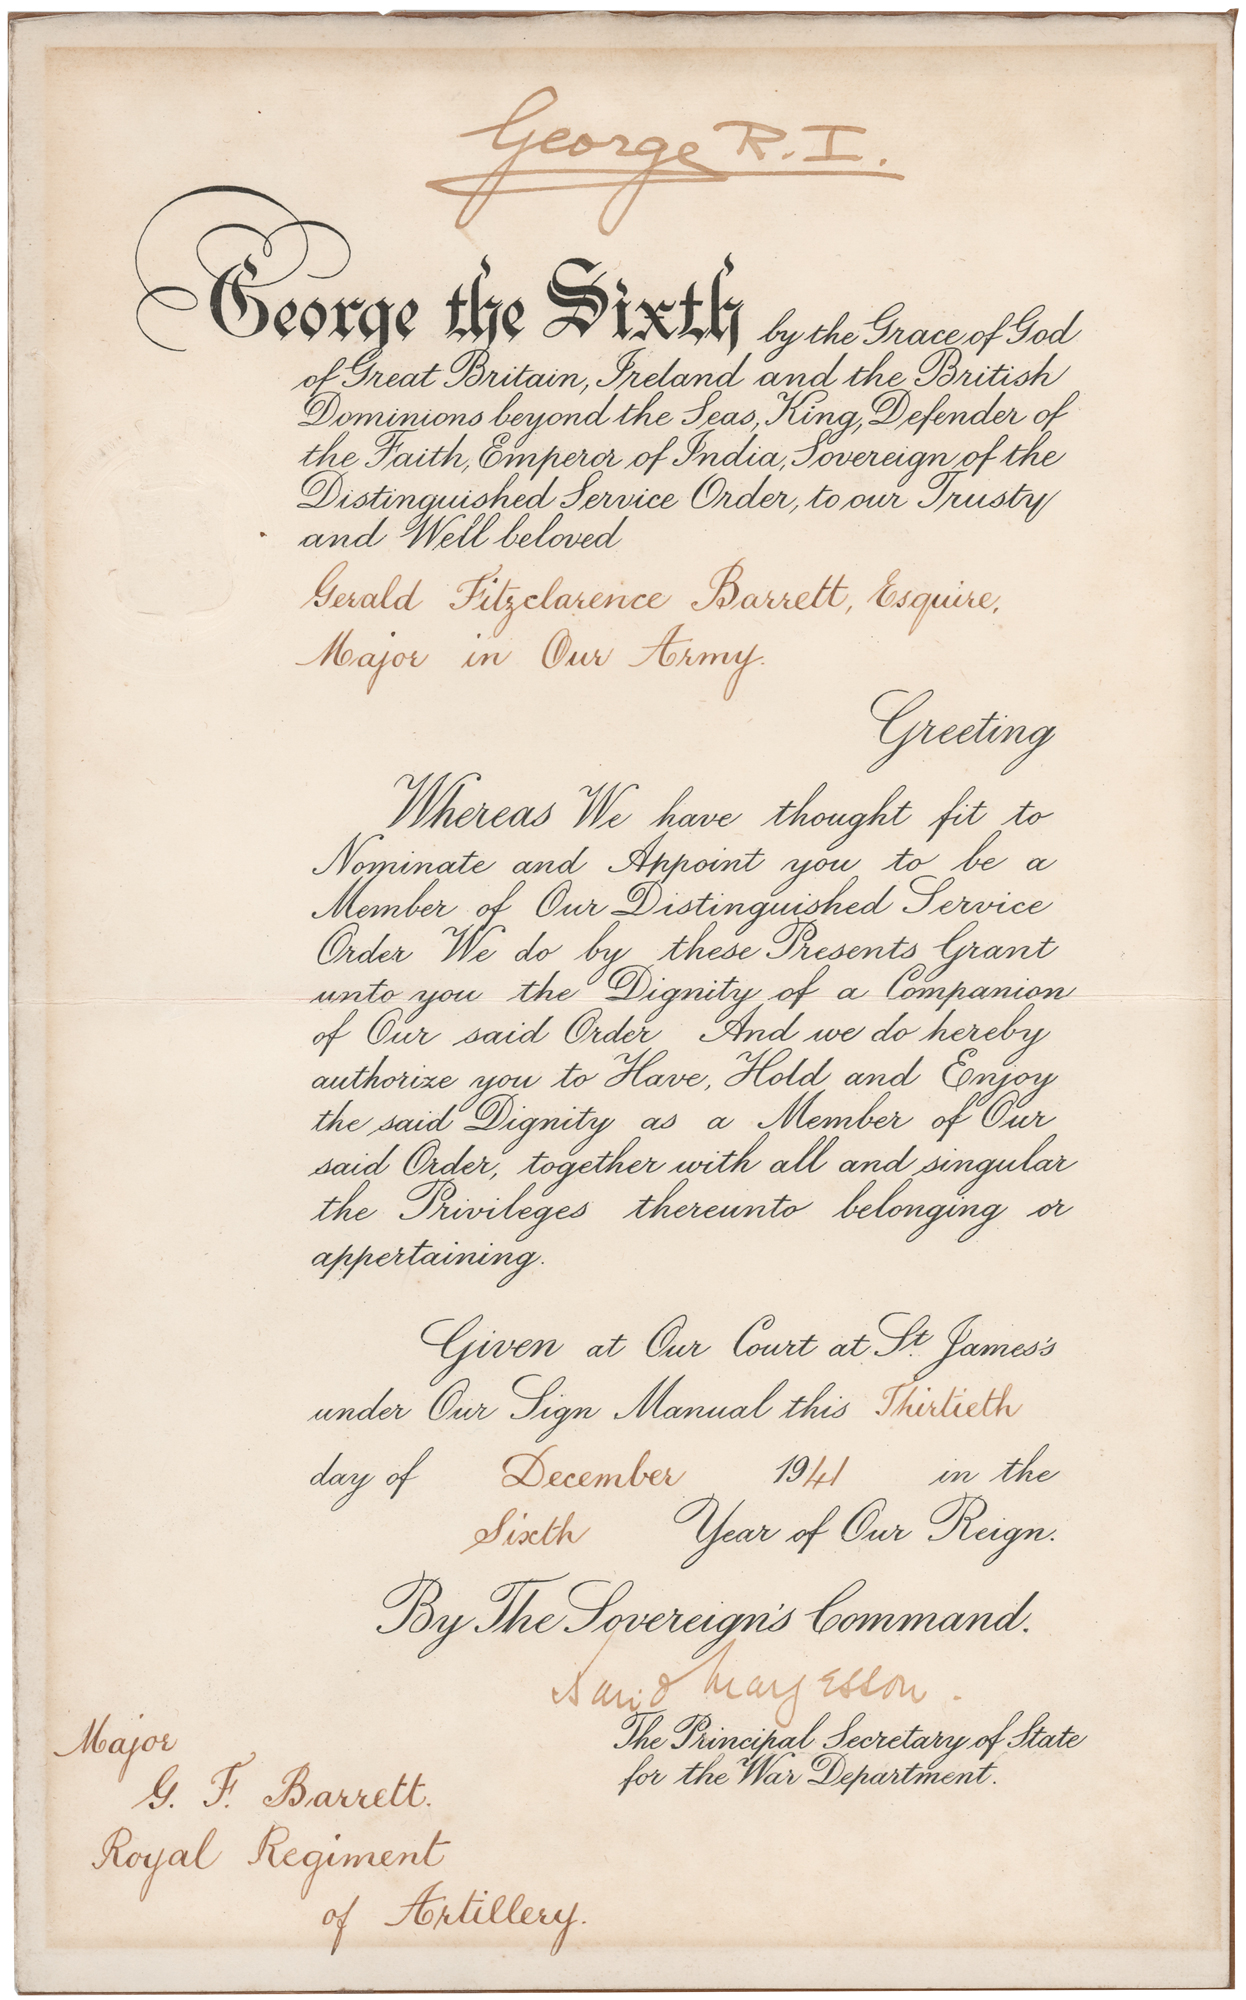 George R.I.
George the Sixth by the Grace of God
of Great Britain, Ireland and the British
Dominions beyond the Seas, King, Defender of
the Faith, Emperor of India, Sovereign of the
Distinguished Service Order, to our Trusty
and Well beloved
Gerald Fitzclarence Barrett, Esquire,
Major in Our Army.
Greeting
Whereas We have thought fit to
Nominate and Appoint you to be a
Member of Our Distinguished Service
Order We do by these Presents Grant
unto you the Dignity of a Companion
of Our said Order And we do hereby
authorize you to Have, Hold and Enjoy
the said Dignity as a Member of Our
said Order, together with all and singular
the Privileges thereunto belonging or
appertaining.
Given at Our Court at St. James's
under Our Sign Manual this Thirtieth
day of December 1941 in the
Sixth Year of Our Reign.
By The Sovereign's Command.
David Margesson.
The Principal Secretary of State
for the War Department.
Major
G. F. Barrett.
Royal Regiment
of Artillery.